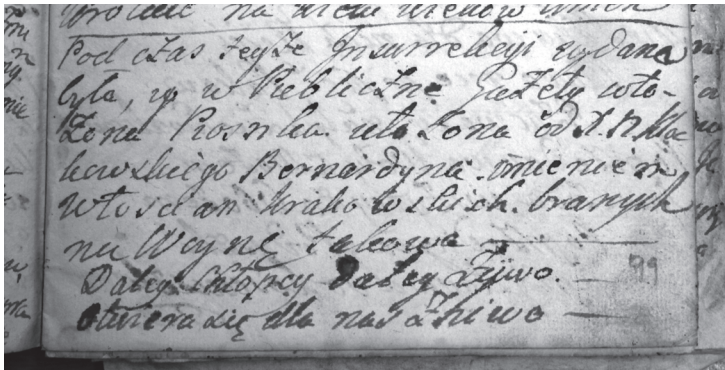 wrocić na wiele wiekow
Pod czas teyże Insurrekcyi wydana
była, y w Publiczne Gazety wło-
żona Piosnka ułożona od X.
kowskiego Bernardyna imieniem
Włoscian Krakowskich branych
na Woynę takowa —
Daley Chłopcy daley żywo. —
Otwiera się dla nas żniwo —
99